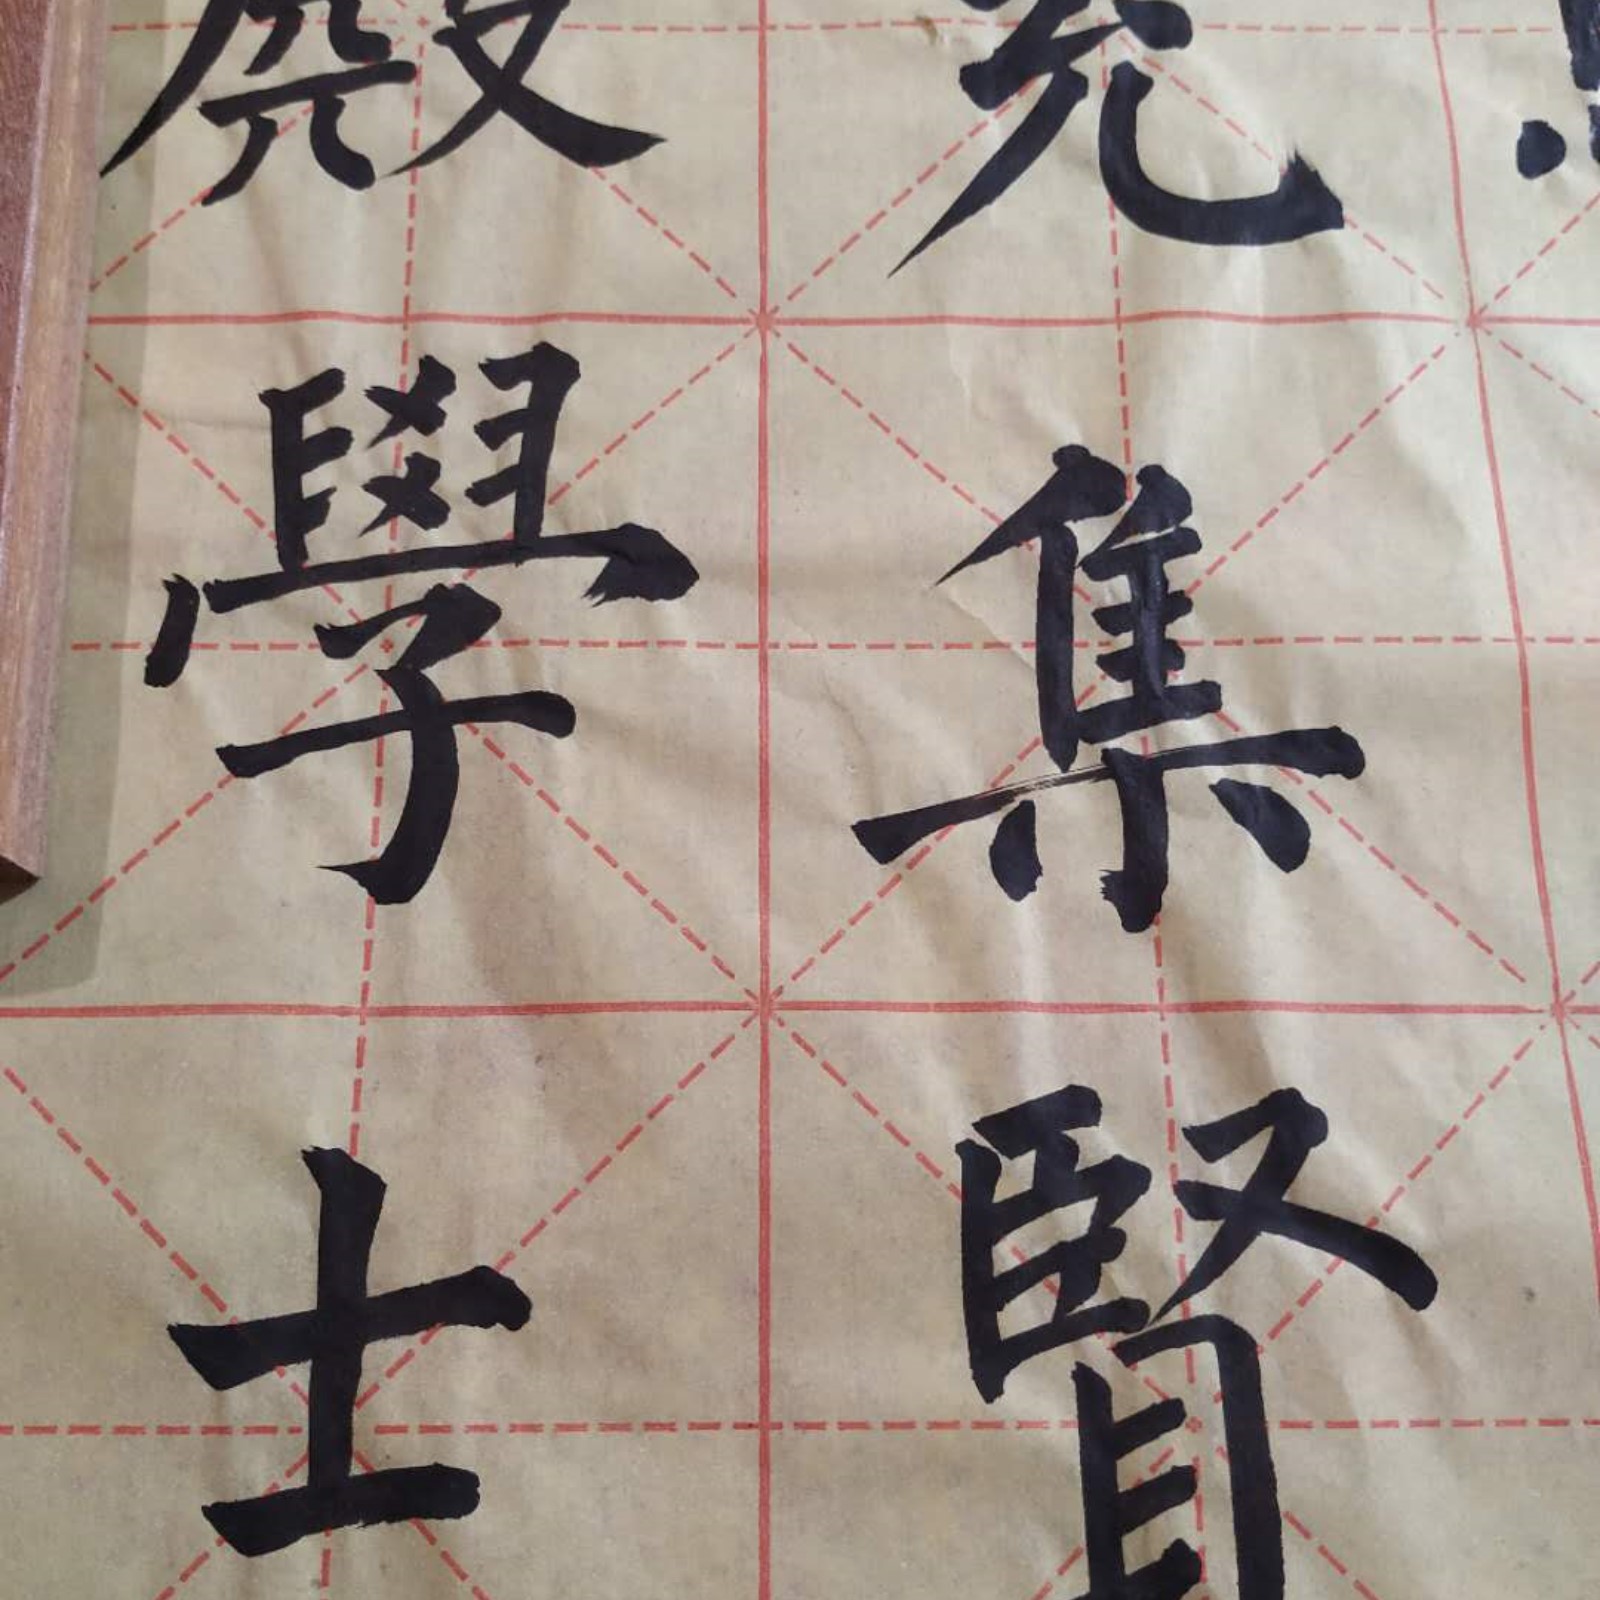 充集賢
殿學士